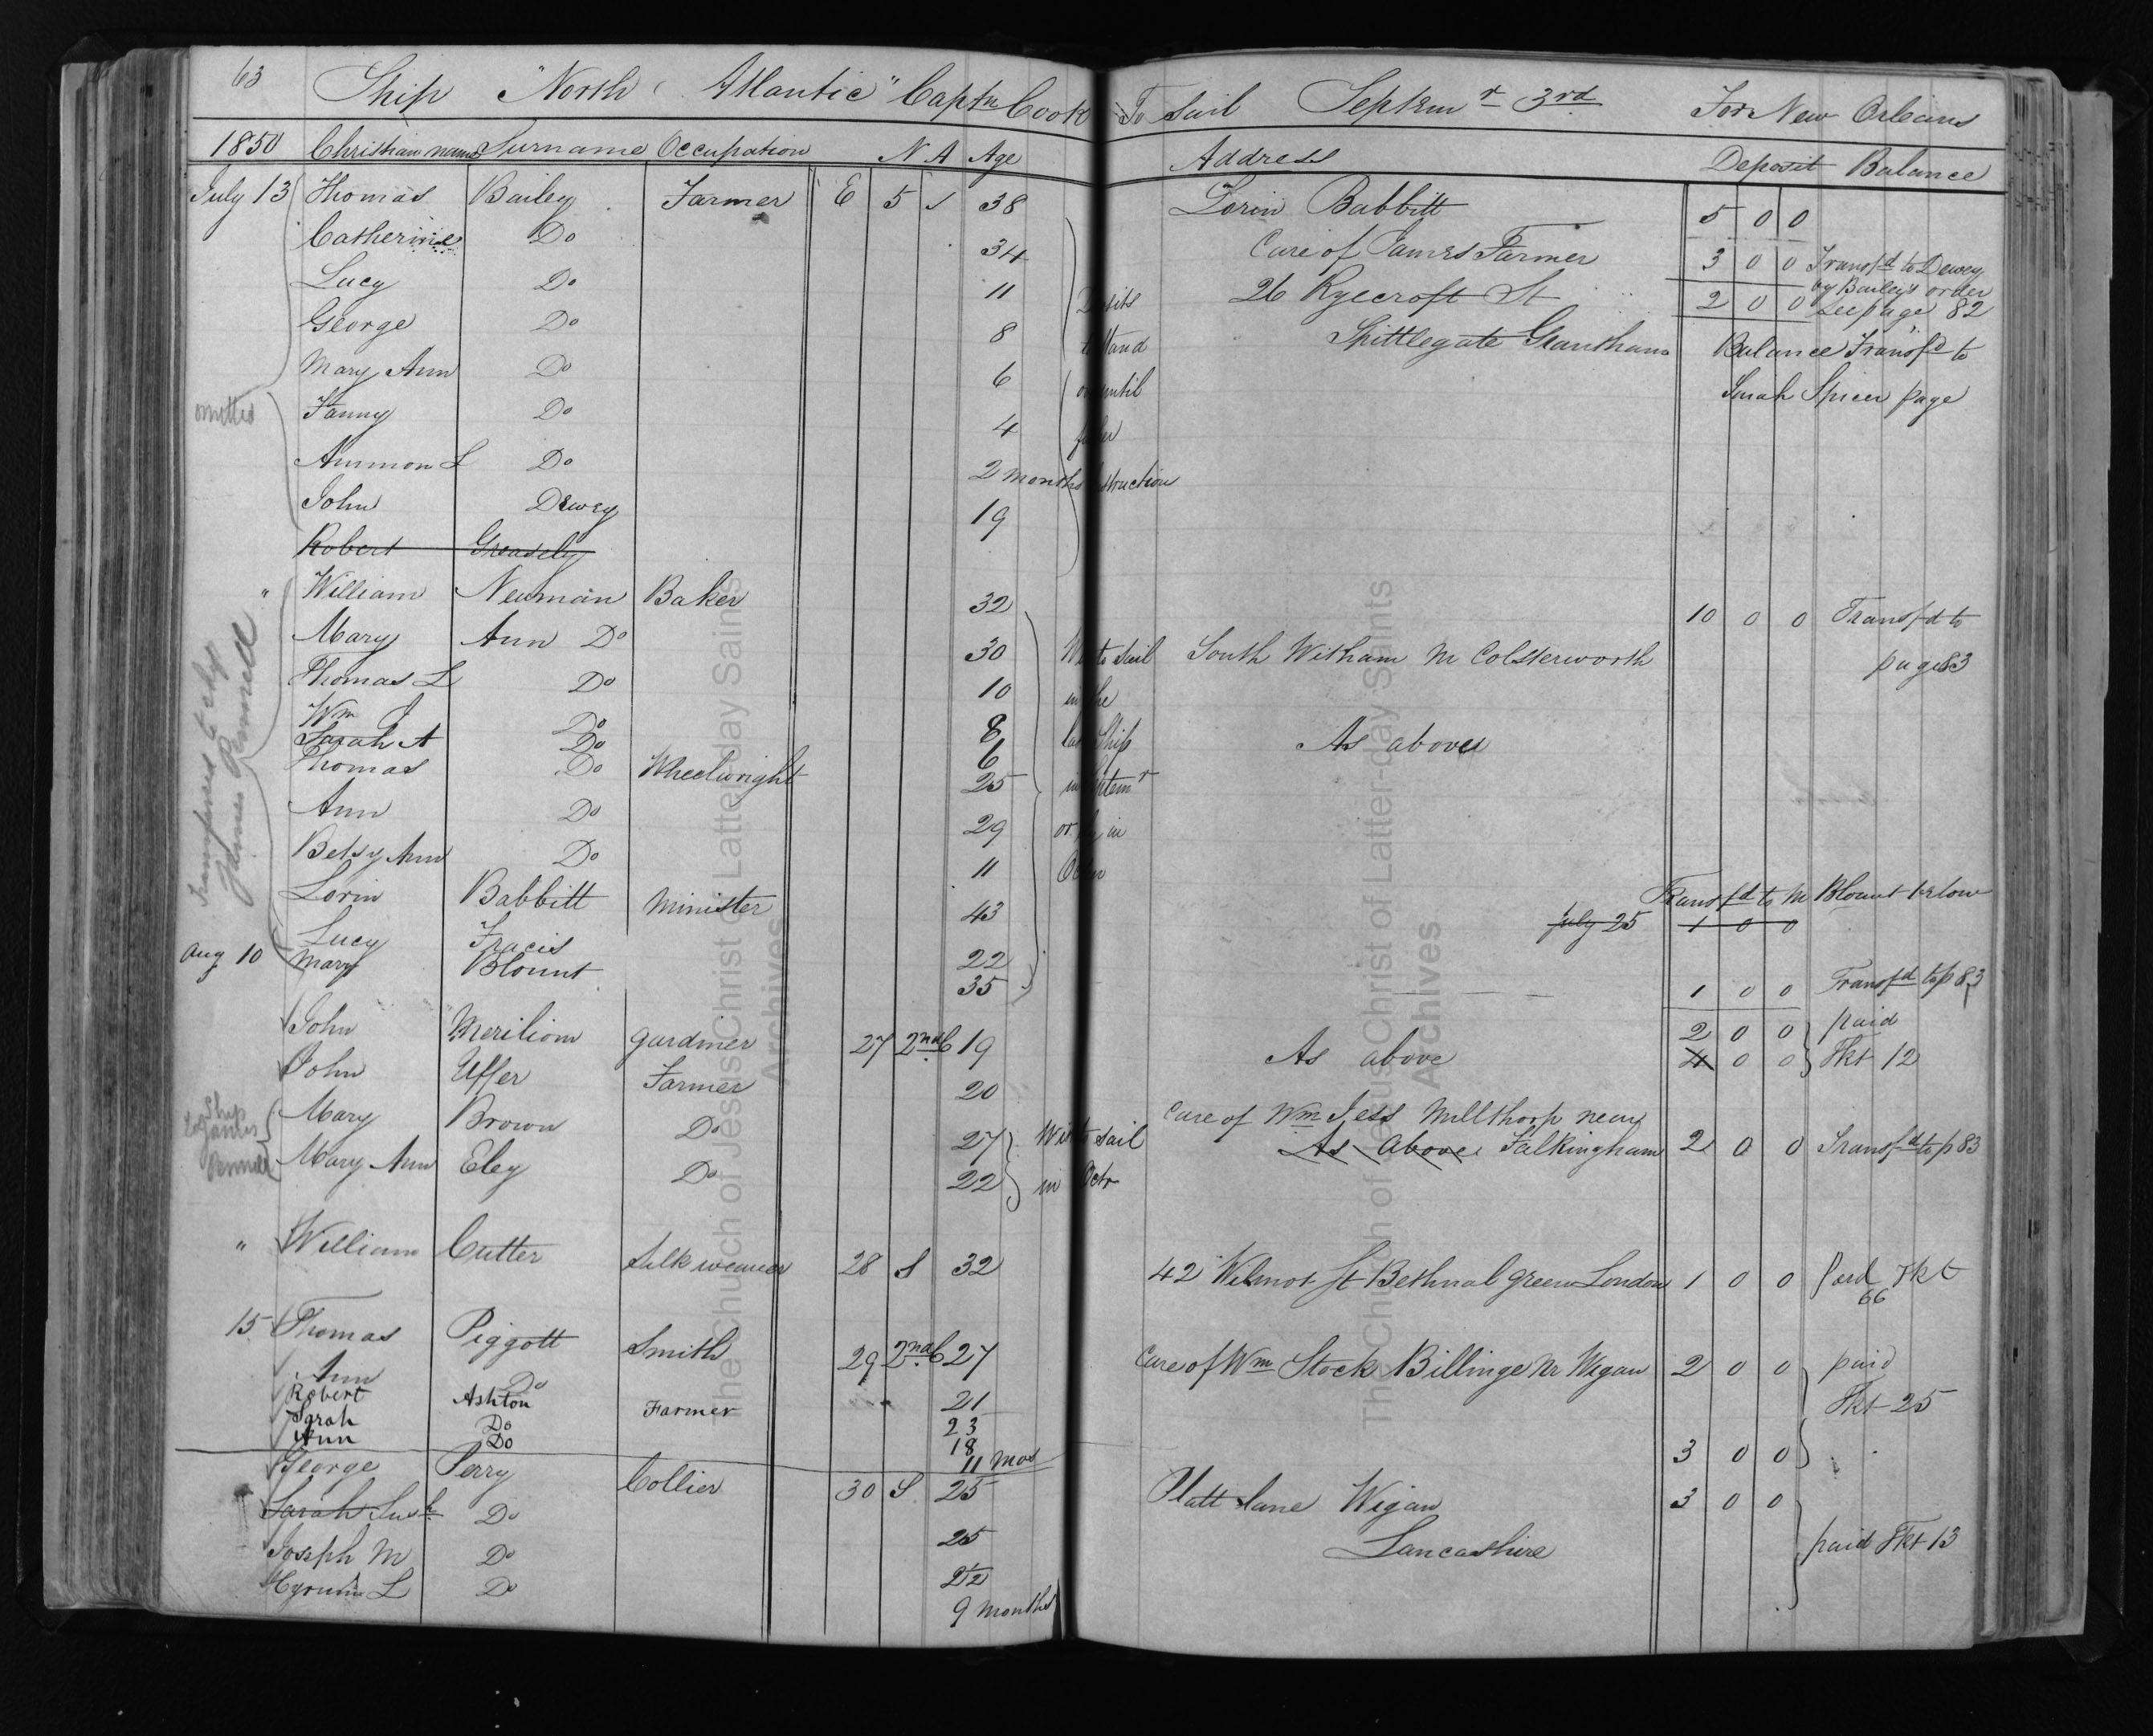 63 Ship "North Atlantic" Captn Cook To Sail Septem r 3rd For New Orleans
1850 Christian name Surname Occupation N A Age Address Deposit Balance
July 13 Thomas Bailey Farmer E 5 s 38 Lorin Babbitt 5 0 0
Catherine Do 34 Care of James Farmer 3 0 0 Transfd to Dewey
by Bailey's order
Lucy Do 11 26 Ryecroft St 2 0 0 See page 82
George Do 8 to stand Spittlegate Grantham Balance Transfd to
Mary Ann Do 6 until Sarah Spicer page
omitted Fanny Do 4
Ammon L Do 2 months struction
John Dewey 19
Robert Greasely
" William Neuman Baker 32 10 0 0 Transfd to
Mary Ann Do 30 to sail South Witham Nr Colsterworth page 83
Thomas L Do 10 in the
Wm J Do 8 Ship As above
Sarah A Do 6
Thomas Do Wheelwright 25
Ann Do 29 or in
Betsy Ann Do 11
Transferred to ship James Pennell
Lorin Babbitt Minister 43 Transfd to M Blount below
July 25 1 0 0
Lucy Fracis 22
Aug 10 Mary Blount 35 1 0 0 Transfd to p 83
John Meriliom gardiner 27 2nd C 19 2 0 0 paid
John Uffer Farmer 20 As above 4 0 0 Tkt 12
Ship James Pennell
Mary Brown Do 27 to sail Care of Wm Jess Millthorp near
As Above Falkingham 2 0 0 Transfd to p 83
Mary Ann Eley Do 22 in Octr
" William Cutter Silk weaver 28 S 32 42 Wilmot St Bethnal green London 1 0 0 paid Tkt
66
15 Thomas Piggott Smith 29 2nd C 27 Care of Wm Stock Billinge Nr Wigan 2 0 0 paid
Ann Do 21 Tkt 25
Robert Ashton Farmer 23
Sarah Do 18
Ann Do 11 mos 3 0 0
George Perry Collier 30 S 25 Platt lane Wigan 3 0 0
Sarah Sush Do 25 Lancashire paid Tkt 13
Joseph M Do 2 1/2
Hyrum L Do 9 months
The Church of Jesus Christ of Latter-day Saints
Archives
The Church of Jesus Christ of Latter-day Saints
Archives